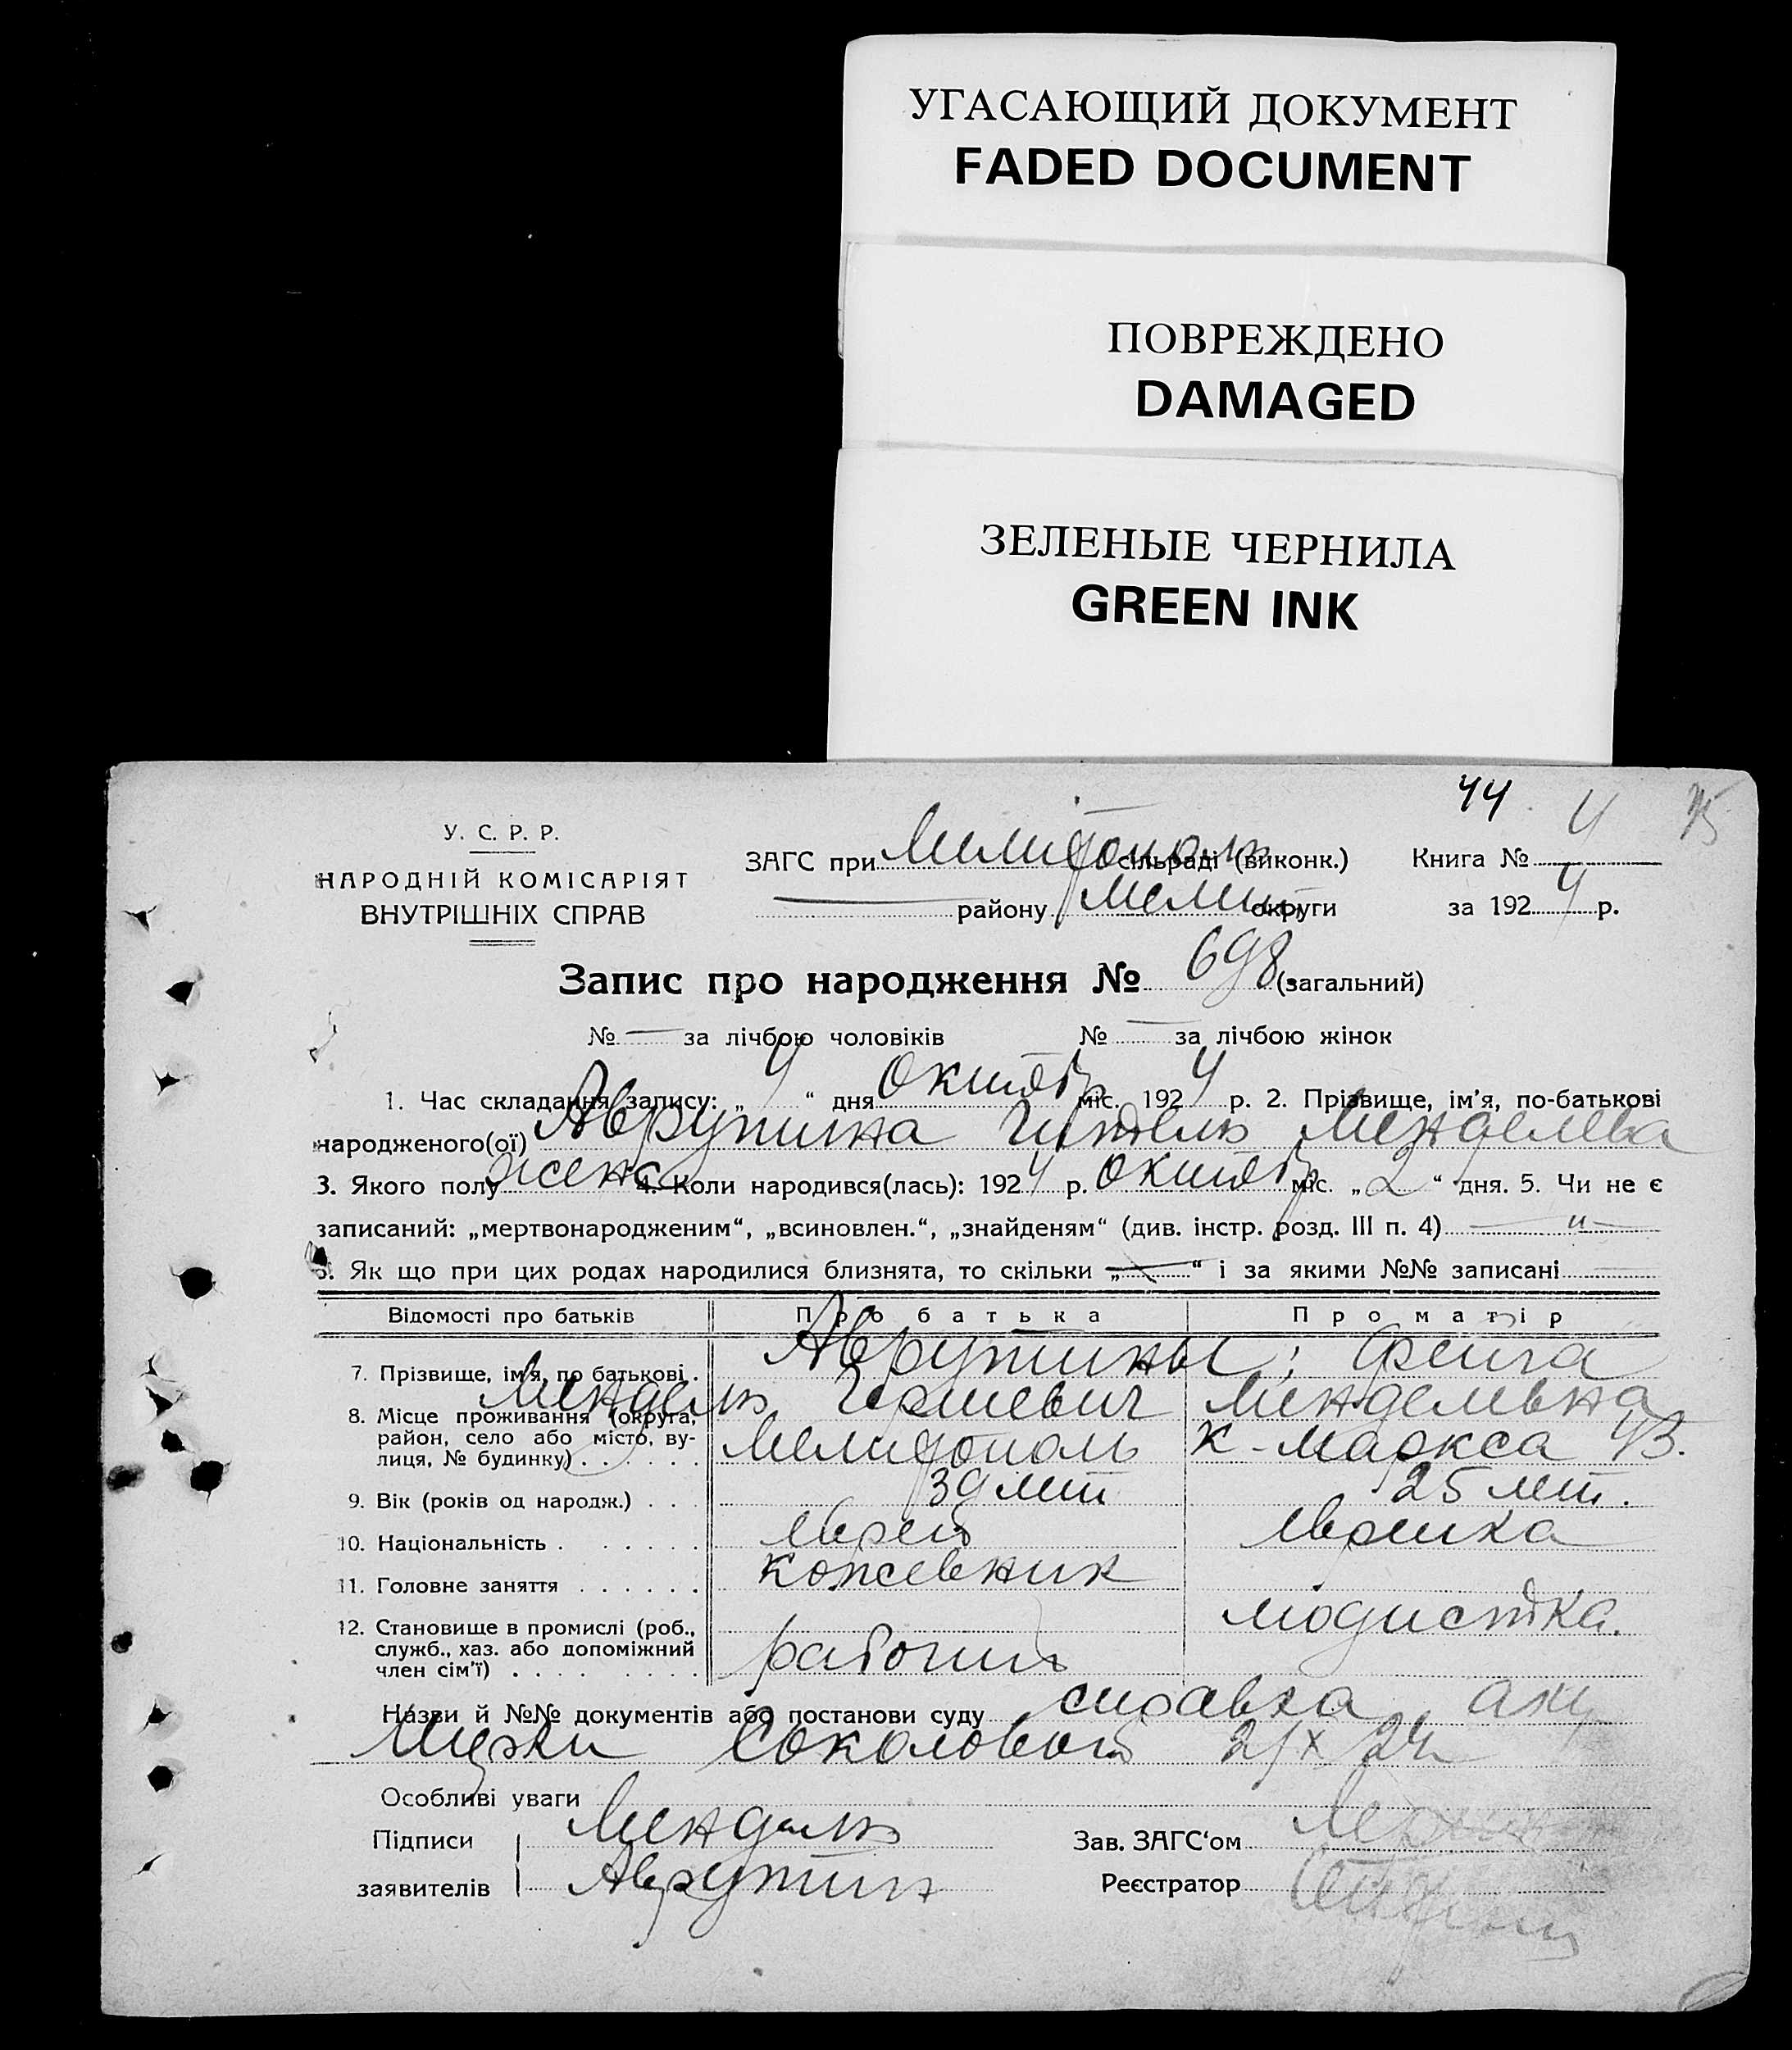 УГАСАЮЩИЙ ДОКУМЕНТ
FADED DOCUMENT
ПОВРЕЖДЕНО
DAMAGED
ЗЕЛЕНЫЕ ЧЕРНИЛА
GREEN INK
44 4
У. С. Р. Р.
НАРОДНІЙ КОМІСАРІЯТ
ВНУТРІШНІХ СПРАВ
ЗАГС при Мелитополь сільраді (виконк.) Книга №
району Мелит округи за 1924 р.
Запис про народження № 698 (загальний)
№ — за лічбою чоловіків № — за лічбою жінок
1. Час складання запису: „4“ дня Октябр міс. 1924 р. 2. Прізвище, ім'я, по-батькові
народженого(ої) Аврутина Гитель Менделева
3. Якого полу женс 4. Коли народився(лась): 1924 р. Октябр міс. „2“ дня. 5. Чи не є
записаний: „мертвонародженим“, „всиновлен.“, „знайденям“ (див. інстр. розд. III п. 4) — „ —
6. Як що при цих родах народилися близнята, то скільки „—“ і за якими №№ записані
Відомості про батьків Про батька Про матір
7. Прізвище, ім'я, по батькові . Аврутины; Фейга
Мендель Гершевич Менделевна
8. Місце проживання (округа,
район, село або місто, ву-
лиця, № будинку) . . . . . . Мелитополь К-Маркса 43.
9. Вік (років од народж.) . . . 39 лет 25 лет.
10. Національність . . . . . . . еврей еврейка
11. Головне заняття . . . . . . кожевник модистка.
12. Становище в промислі (роб.,
служб., хаз. або допоміжний
член сім'ї) . . . . . . . . . рабочий
Назви й №№ документів або постанови суду справка аку
шерки Соколовой 2/X 24
Особливі уваги
Підписи Мендель Зав. ЗАГС'ом
заявителів Аврутин Реєстратор